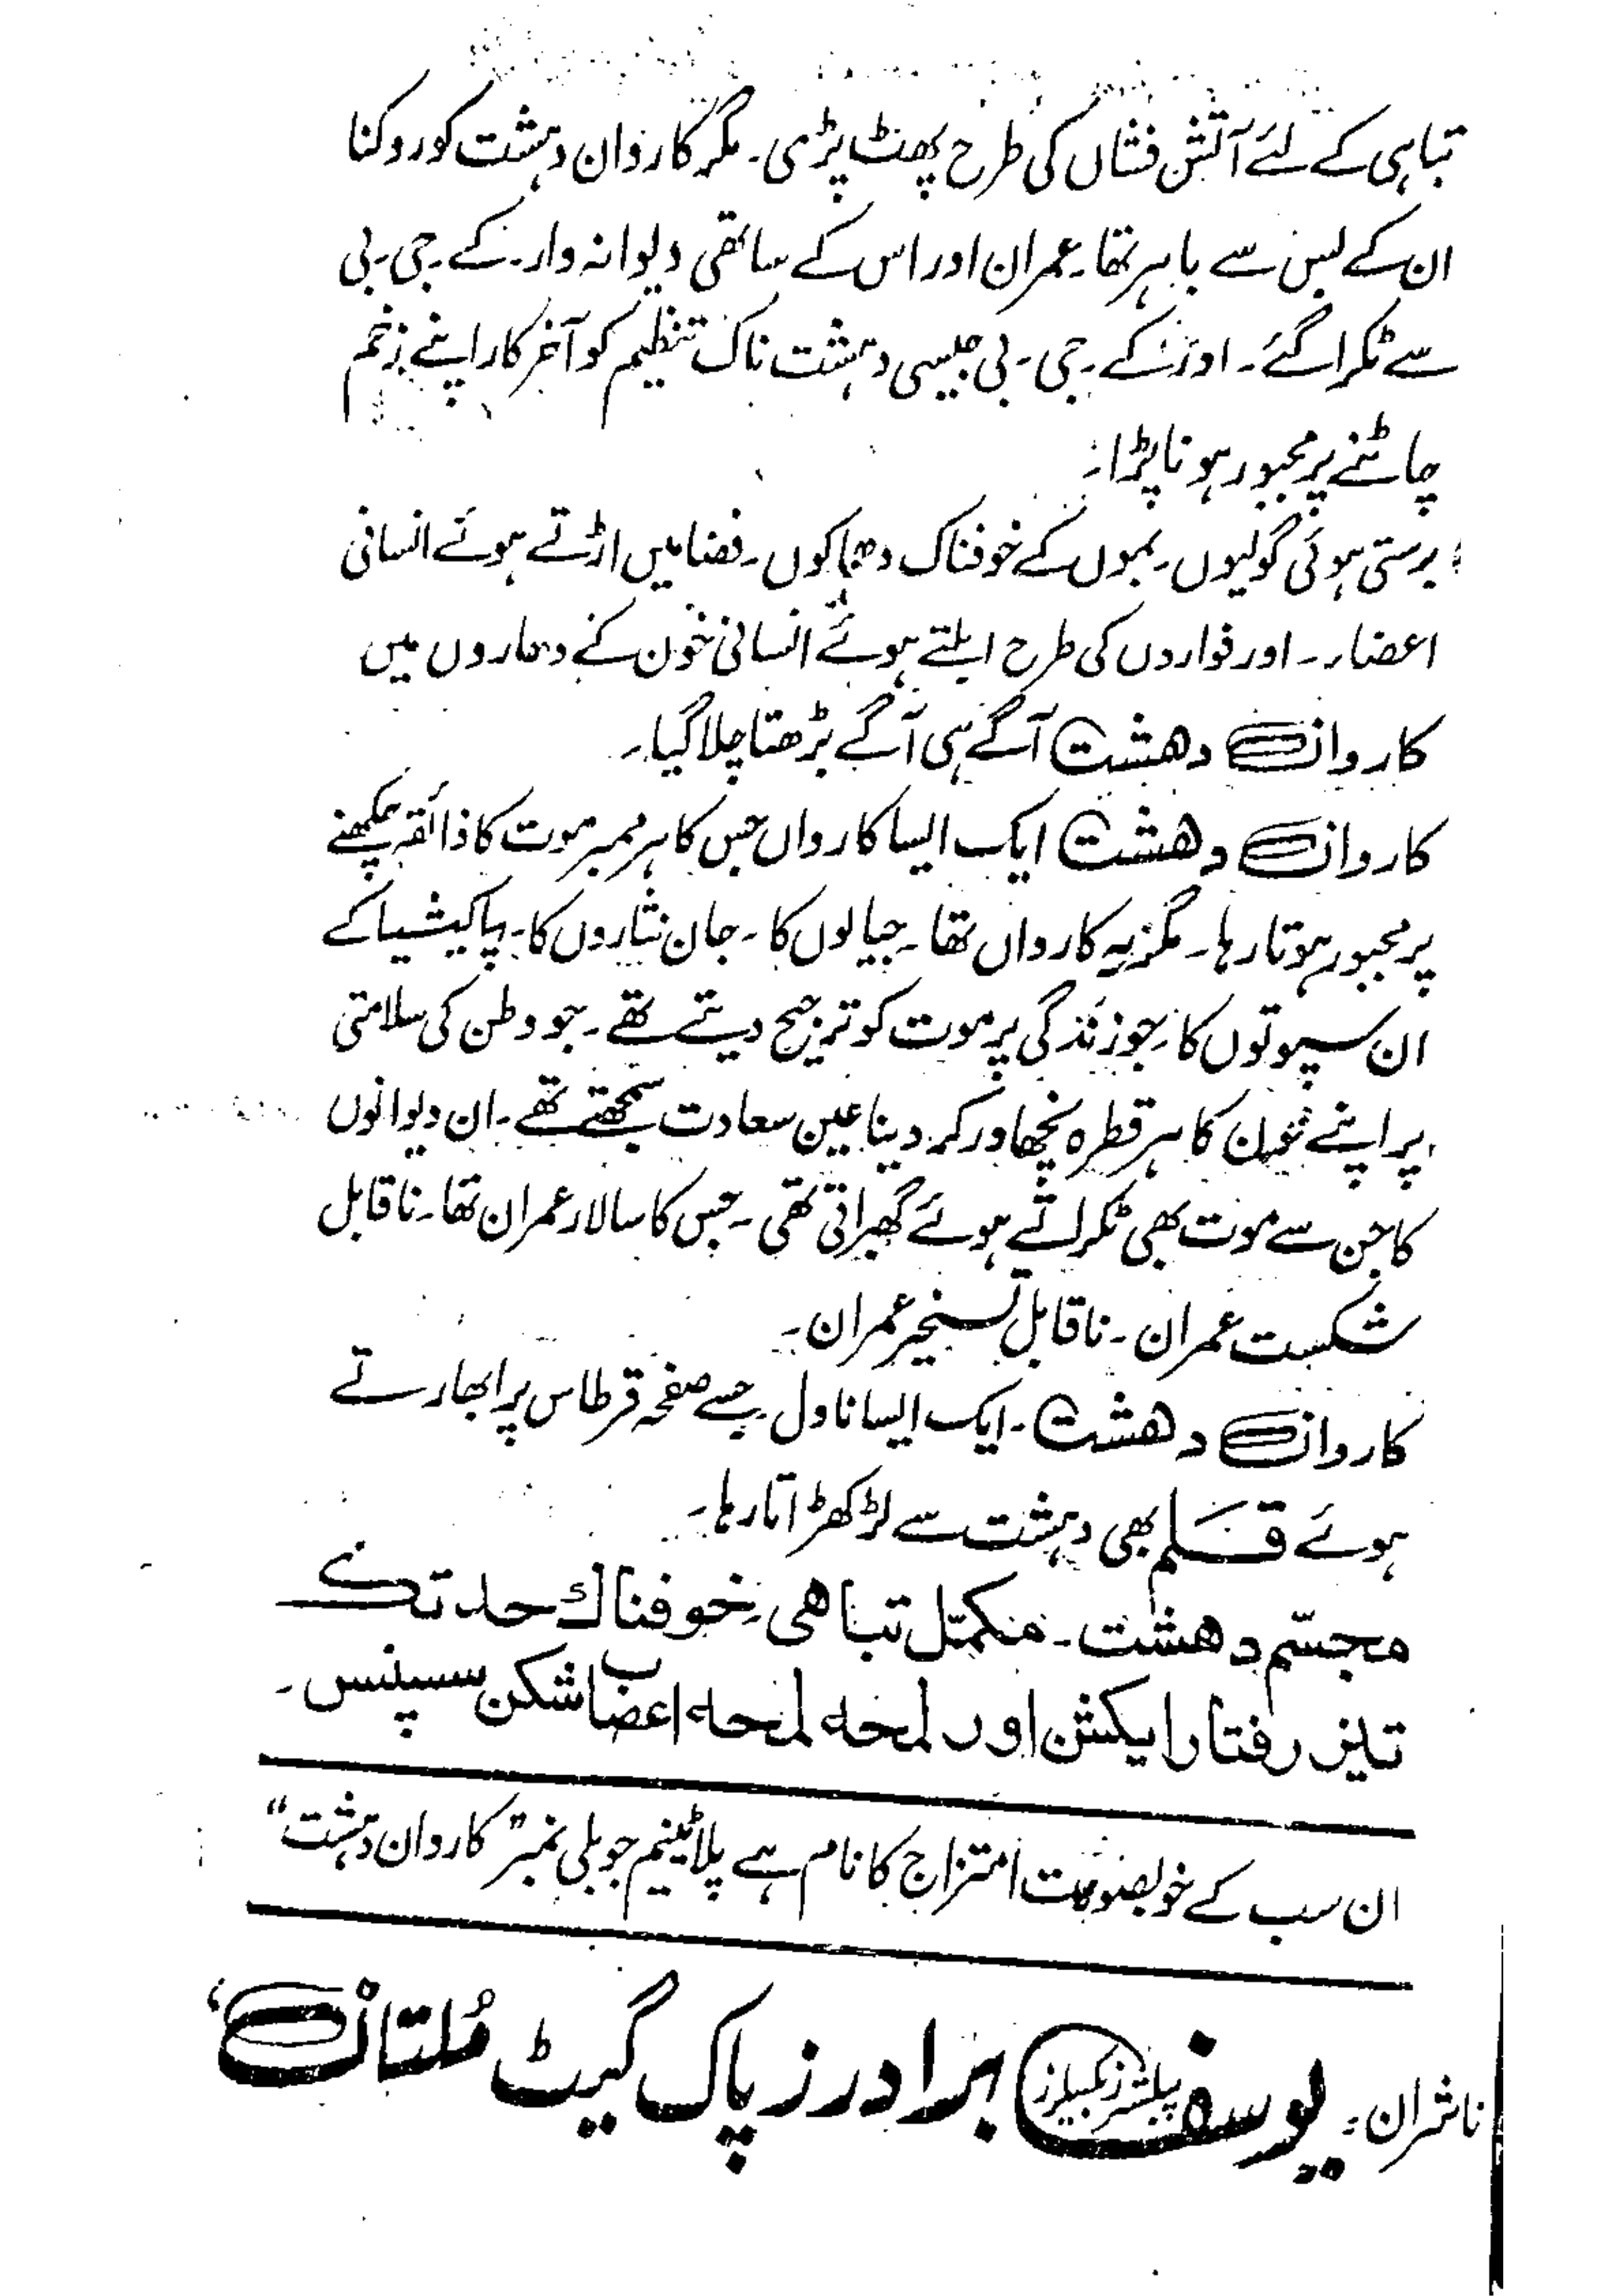 تباہی کے لئے آتش فشاں کی طرح پھٹ پڑی۔ مگر کاروان دہشت کو روکنا
ان کے بس سے باہر تھا۔ عمران اور اس کے ساتھی دیوانہ وار۔ کے۔ جی۔ بی
سے ٹکرا گئے۔ اور کے۔ جی۔ بی جیسی دہشت ناک تنظیم کو آخر کار اپنے زخم
چاٹنے پر مجبور ہونا پڑا۔
برستی ہوئی گولیوں۔ بموں کے خوفناک دھماکوں۔ فضا میں اڑتے ہوئے انسانی
اعضاء۔ اور فواروں کی طرح ابلتے ہوئے انسانی خون کے دھاروں میں
کاروان دھشت آگے ہی آگے بڑھتا چلا گیا۔
کاروان دھشت ایک ایسا کارواں جس کا ہر ممبر موت کا ذائقہ چکھنے
پر مجبور ہوتا رہا۔ مگر یہ کارواں تھا۔ جیالوں کا۔ جان نثاروں کا۔ پاکیشیا کے
ان سپوتوں کا۔ جو زندگی پر موت کو ترجیح دیتے تھے۔ جو وطن کی سلامتی
پر اپنے خون کا ہر قطرہ نچھاور کر دینا عین سعادت سمجھتے تھے۔ ان دیوانوں
کا جن سے موت بھی ٹکراتے ہوئے گھبراتی تھی۔ جس کا سالار عمران تھا۔ ناقابل
شکست عمران۔ ناقابل تسخیر عمران۔
کاروان دھشت۔ ایک ایسا ناول جسے صفحہ قرطاس پر ابھارتے
ہوئے قلم بھی دہشت سے لڑکھڑاتا رہا۔
مجسّم دھشت۔ مکمّل تباھی۔ خوفناک حد تک
تیز رفتار ایکشن اور لمحہ لمحہ اعصاب شکن سسپنس۔
ان سب کے خوبصورت امتزاج کا نام ہے پلاٹینم جوبلی نمبر "کاروان دہشت"
ناشران: یوسف برادرز پاک گیٹ مُلتان
پبلشرز بکسیلرز